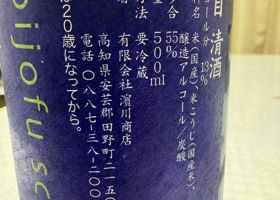 目 清酒
コール分 13%
米(国産)、米こうじ(国産米)、
醸造アルコール/炭酸
合 55%
500ml
方法 要冷蔵
有限会社 濵川商店
高知県安芸郡田野町二一五〇
電話 〇八八七-三八-二〇〇
は20歳になってから。
bijofu